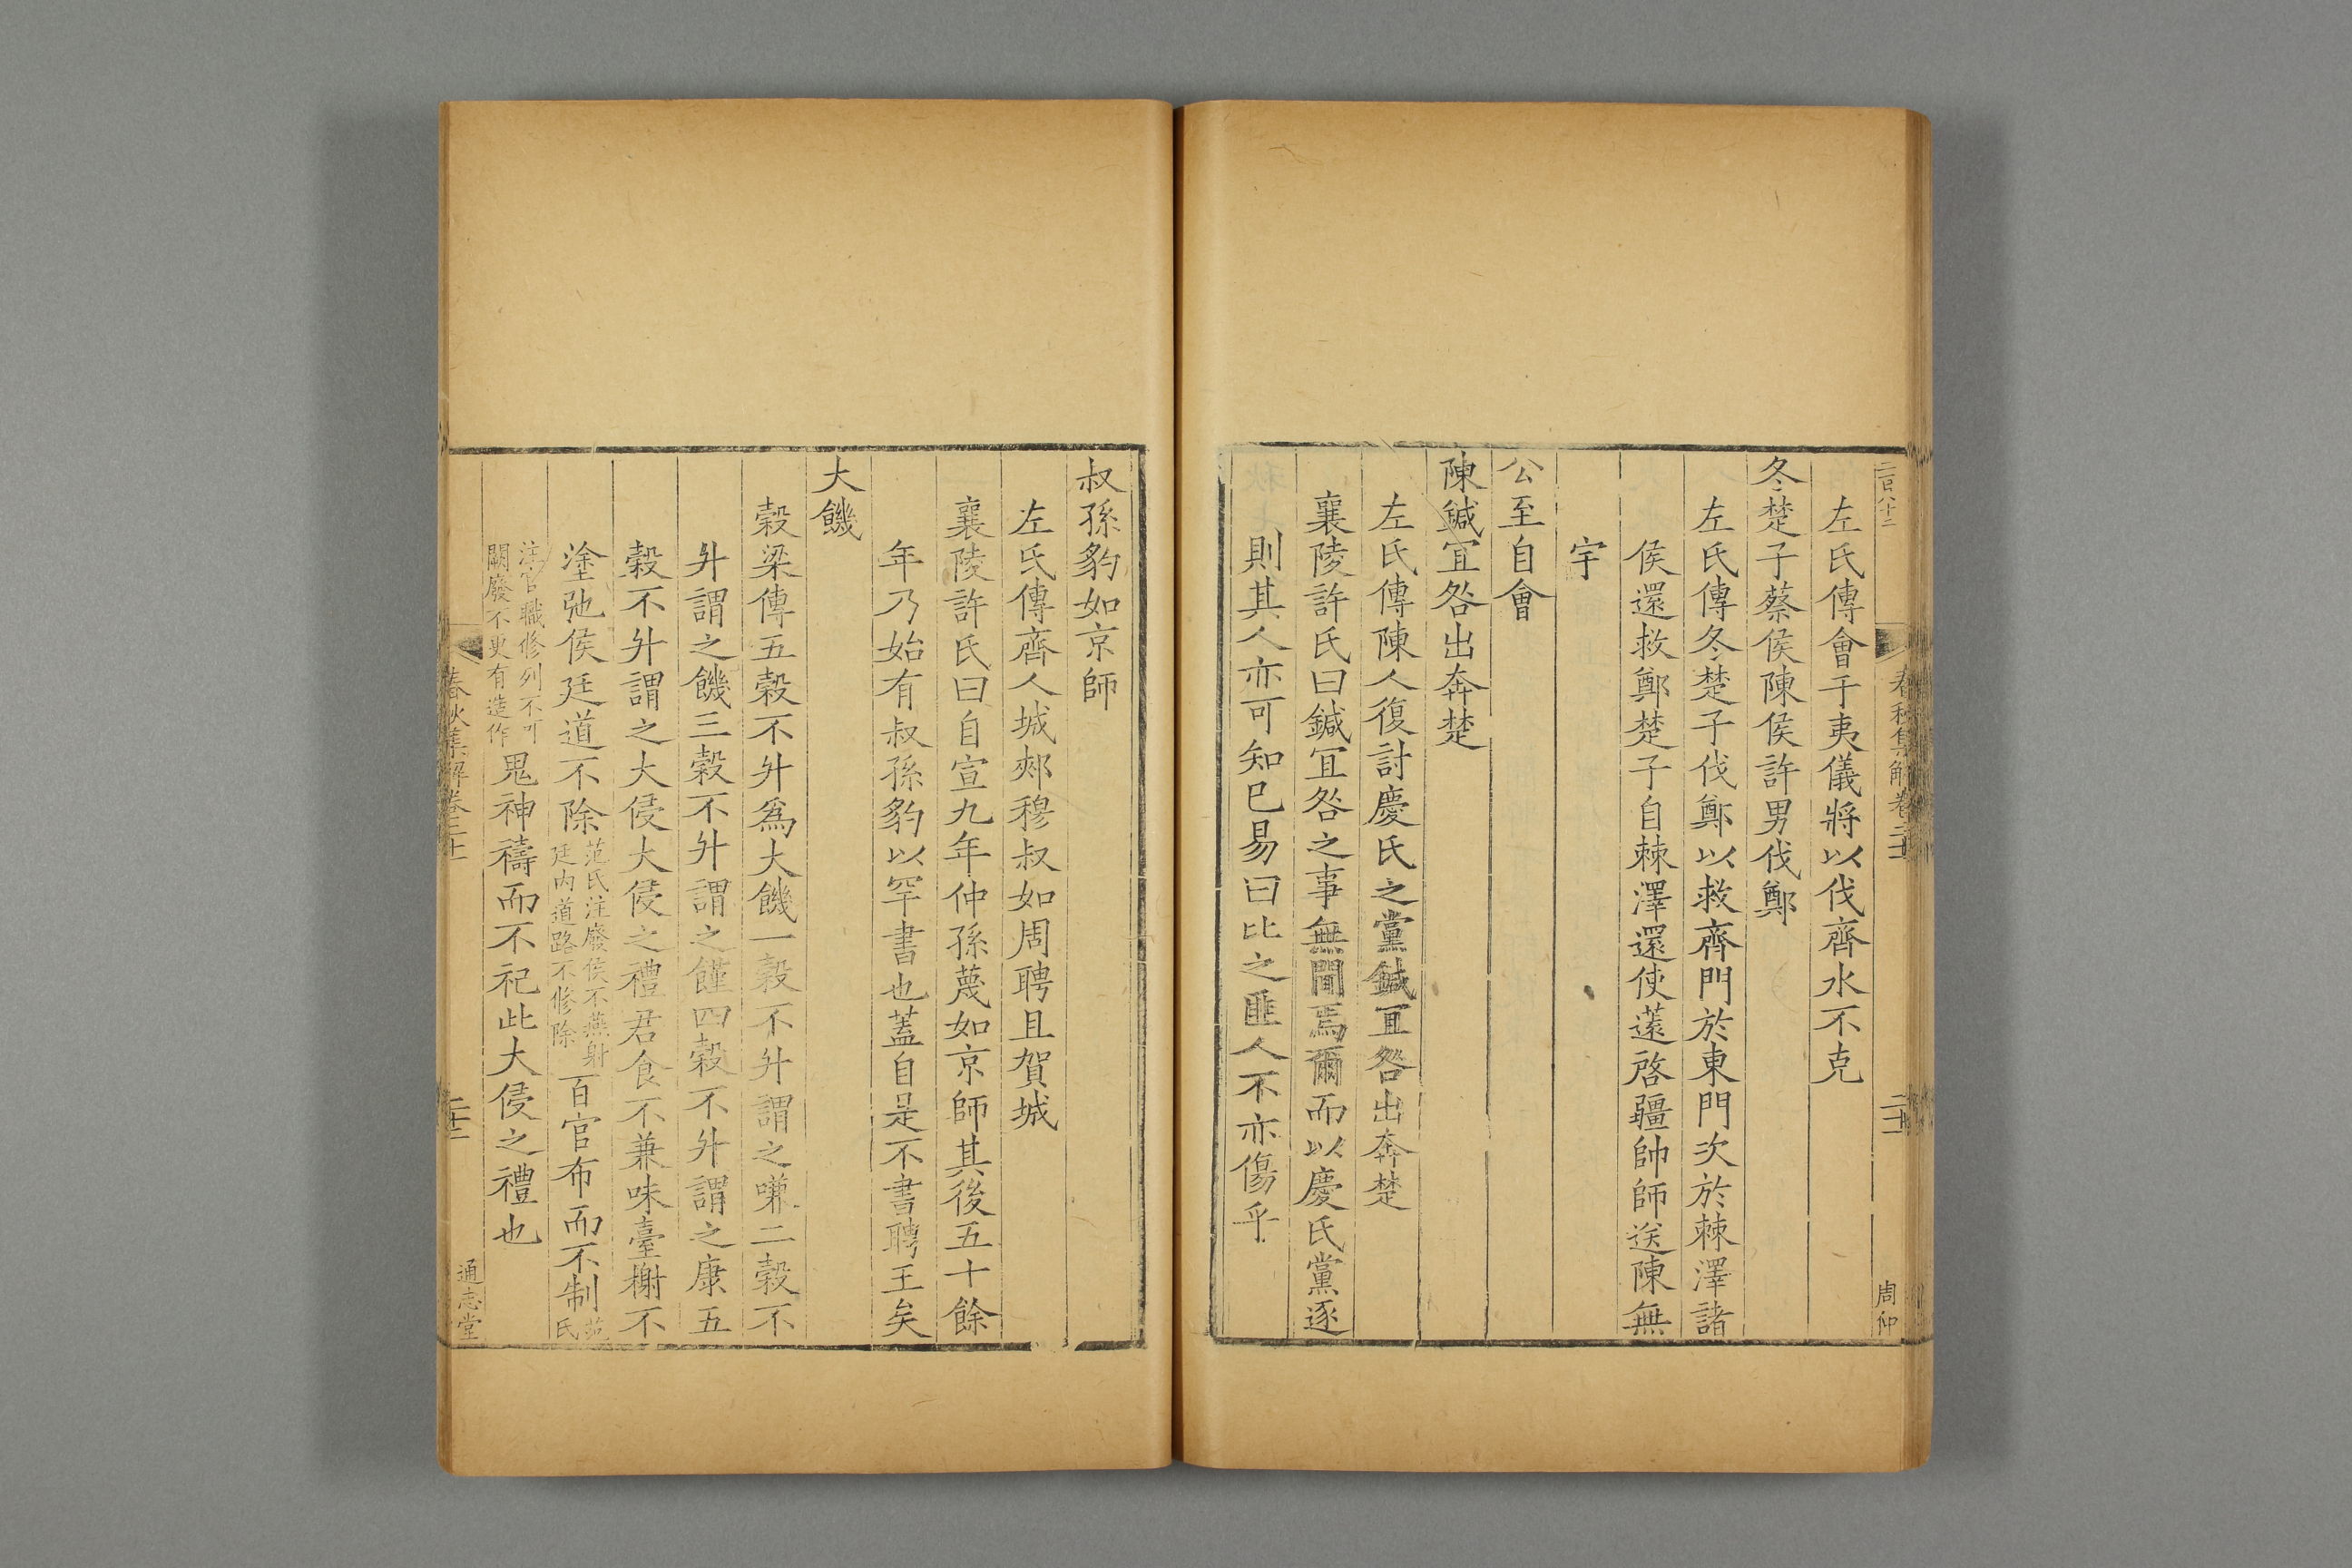 二百八十二
春秋集解卷二十
二十一
周仲
左氏傳會于夷儀將以伐齊水不克
冬楚子蔡侯陳侯許男伐鄭
左氏傳冬楚子伐鄭以救齊門於東門次於棘澤諸
侯還救鄭楚子自棘澤還使薳啓彊帥師送陳無
宇
公至自會
陳鍼宜咎出奔楚
左氏傳陳人復討慶氏之黨鍼宜咎出奔楚
襄陵許氏曰鍼宜咎之事無聞焉爾而以慶氏黨逐
則其人亦可知已易曰比之匪人不亦傷乎
叔孫豹如京師
左氏傳齊人城郟穆叔如周聘且賀城
襄陵許氏曰自宣九年仲孫蔑如京師其後五十餘
年乃始有叔孫豹以罕書也蓋自是不書聘王矣
大饑
穀梁傳五穀不升爲大饑一穀不升謂之嗛二穀不
升謂之饑三穀不升謂之饉四穀不升謂之康五
穀不升謂之大侵大侵之禮君食不兼味臺榭不
塗弛侯廷道不除范氏注廢侯不燕射廷内道路不修除百官布而不制范氏
注官職修列不可闕廢不更有造作鬼神禱而不祀此大侵之禮也
春秋集解卷二十
二十二
通志堂